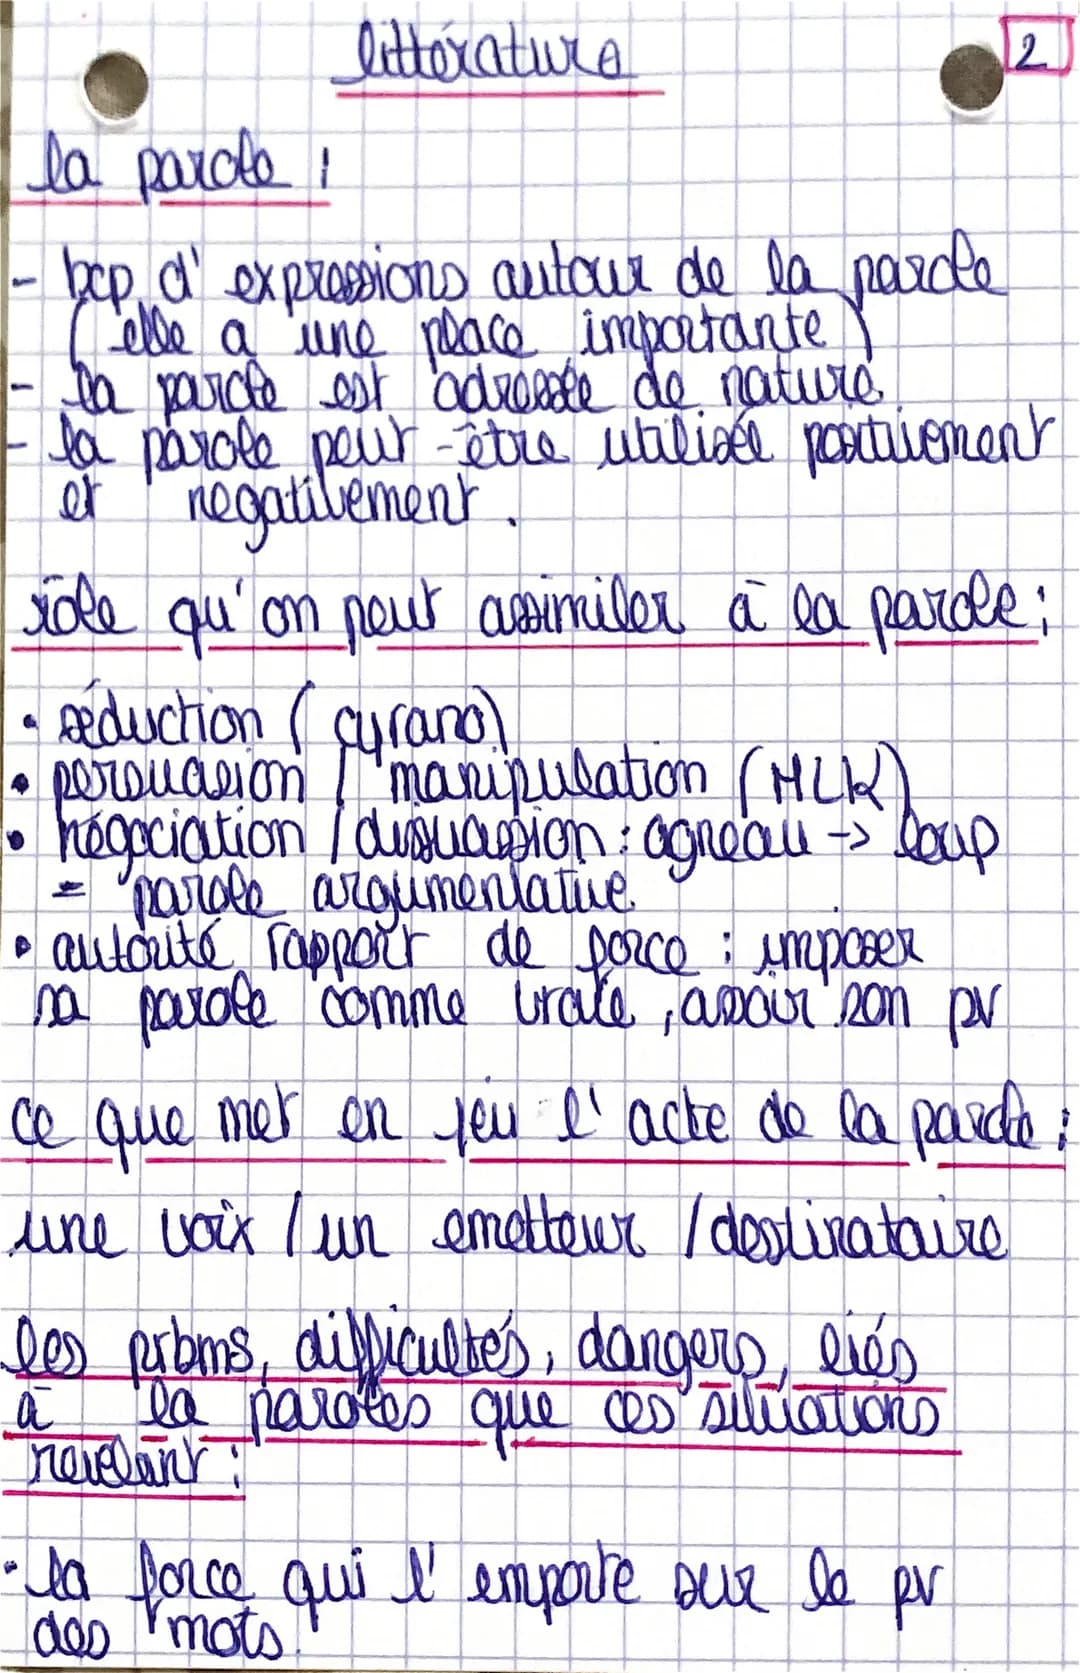 littérature
2
la parole :
- bcp d' expressions autour de la parole
( elle a une place importante )
- la parole est adressée de nature
- la parole peut-être utilisée positivement
et negativement.
rôle qu'on peut assimiler à la parole :
• séduction ( cyrano )
• persuasion / manipulation (MLK)
• négociation / dissuassion : agneau -> loup
= parole argumentative
• autorité rapport de force : imposer
sa parole comme vraie, assoir son pv
ce que met en jeu l' acte de la parole :
une voix / un emetteur / destinataire
les prbms, difficultés, dangers, liés
à la paroles que ces situations
revelant :
• la force qui l' emporte sur le pv
des mots.